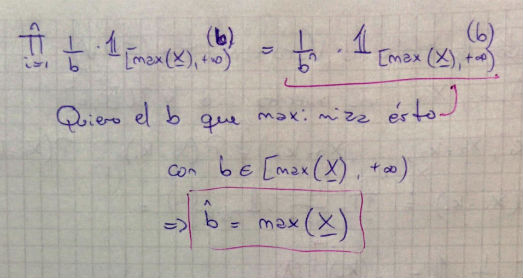 n ∏ i=1 1/b · 𝟙 [max(X), +∞) (b) = 1/bⁿ · 𝟙 [max(X), +∞) (b)
Quiero el b que maximiza ésto
con b ∈ [max(X), +∞)
=> b̂ = max(X)